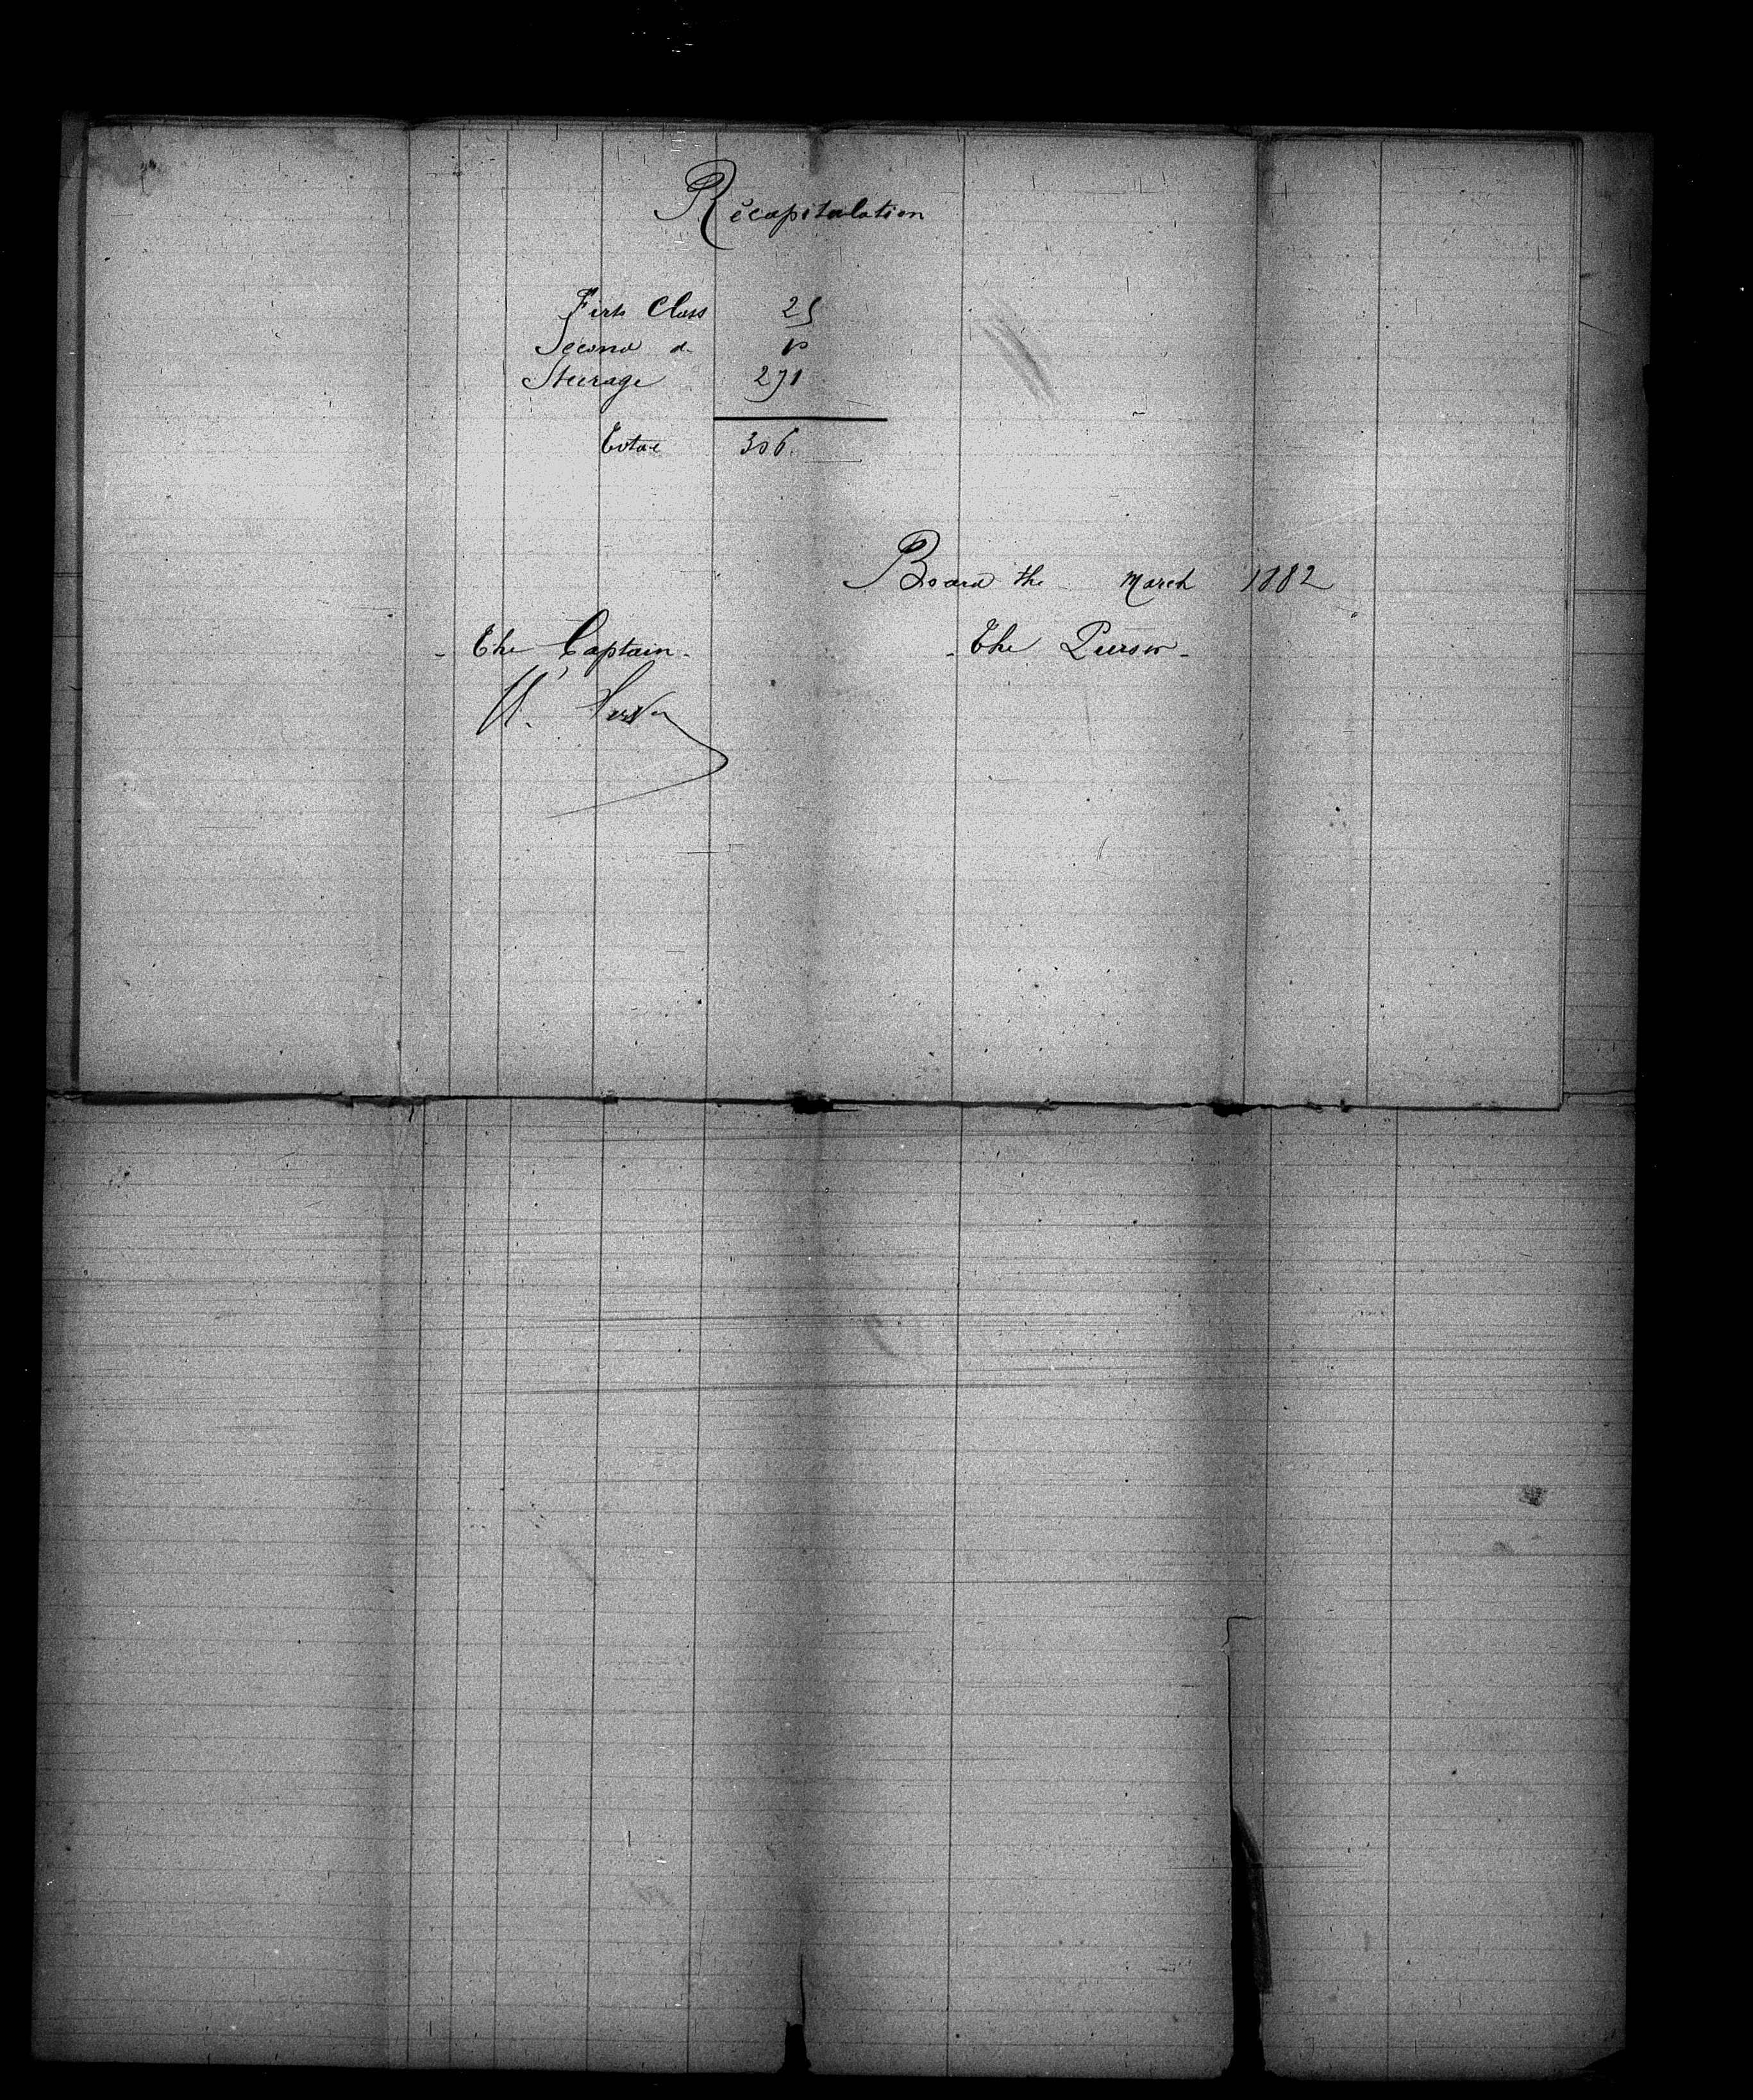 Récapitulation
First Class 25
Second d. 10
Steerage 271
Total 306
Board the March 1882
- The Captain -
- The Purser -